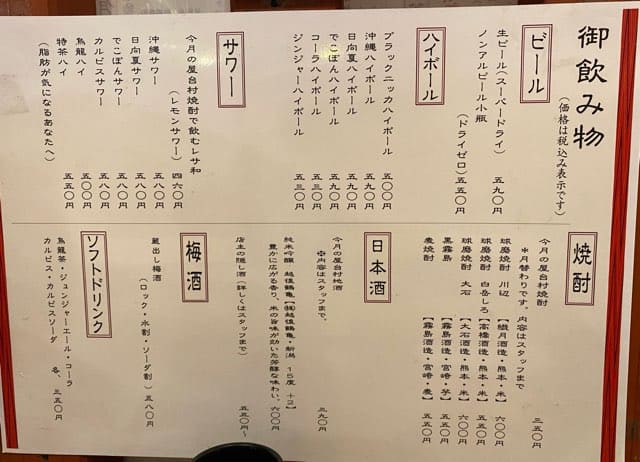 御飲み物
(価格は税込み表示です)
ビール
生ビール(スーパードライ) 五九〇円
ノンアルビール小瓶
(ドライゼロ) 五五〇円
ハイボール
ブラックニッカハイボール 五〇〇円
沖縄ハイボール 五九〇円
日向夏ハイボール 五九〇円
でこぽんハイボール 五九〇円
コーラハイボール 五三〇円
ジンジャーハイボール 五三〇円
サワー
今月の屋台村焼酎で飲むレサ和
(レモンサワー) 四六〇円
沖縄サワー 五八〇円
日向夏サワー 五八〇円
でこぽんサワー 五八〇円
カルピスサワー 五八〇円
烏龍ハイ 五〇〇円
特茶ハイ 五五〇円
(脂肪が気になるあなたへ)
焼酎
今月の屋台村焼酎 三五〇円
*月替わりです。内容はスタッフまで
球磨焼酎 川辺 【繊月酒造・熊本・米】 六〇〇円
球磨焼酎 白岳しろ 【高橋酒造・熊本・米】 五五〇円
球磨焼酎 大石 【大石酒造・熊本・米】 六〇〇円
黒霧島 【霧島酒造・宮崎・芋】 五五〇円
麦焼酎 【霧島酒造・宮崎・麦】 五五〇円
日本酒
今月の屋台村地酒 三九〇円
※内容はスタッフまで。
純米吟醸 越後鶴亀【㈱越後鶴亀・新潟 15度 +2】
豊かに広がる香り、米の旨味が効いた芳醇な味わい。 六〇〇円
店主の隠し酒(詳しくはスタッフまで) 五五〇円~
梅酒
蔵出し梅酒
(ロック・水割・ソーダ割) 五八〇円
ソフトドリンク
烏龍茶・ジンジャーエール・コーラ
カルピス・カルピスソーダ 各、三五〇円